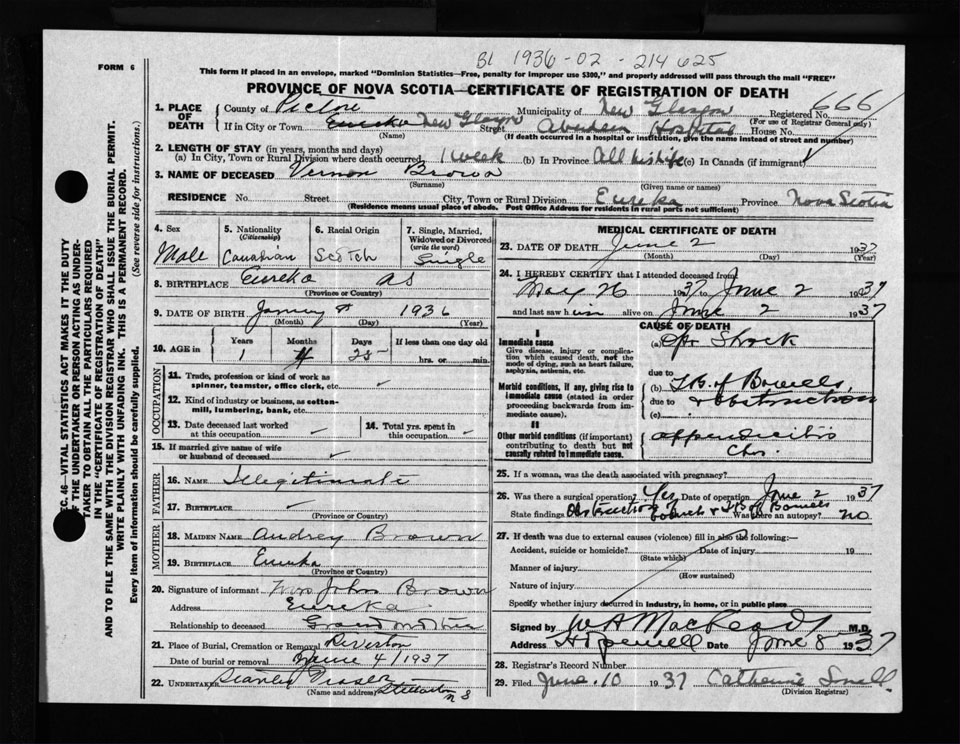 Bl 1936-02-214625
FORM 6
This form if placed in an envelope, marked "Dominion Statistics—Free, penalty for improper use $300," and properly addressed will pass through the mail "FREE"
PROVINCE OF NOVA SCOTIA—CERTIFICATE OF REGISTRATION OF DEATH
1. PLACE OF DEATH County of Pictou Municipality of New Glasgow Registered No. 666
(For use of Registrar General only)
If in City or Town Eureka New Glasgow Street Aberdeen Hospital House No.
(Name) (If death occurred in a hospital or institution, give name instead of street and number)
2. LENGTH OF STAY (in years, months and days)
(a) In City, Town or Rural Division where death occurred 1 week (b) In Province All his life (c) In Canada (if immigrant)
3. NAME OF DECEASED Vernon Brown
(Surname) (Given name or names)
RESIDENCE No. Street City, Town or Rural Division Eureka Province Nova Scotia
(Residence means usual place of abode. Post Office Address for residents in rural parts not sufficient)
4. Sex Male
5. Nationality (Citizenship) Canadian
6. Racial Origin Scotch
7. Single, Married, Widowed or Divorced (write the word) Single
8. BIRTHPLACE Eureka
(Province or Country)
9. DATE OF BIRTH January 8 1936
(Month) (Day) (Year)
10. AGE in Years Months Days If less than one day old
1 4 25 hrs. or min.
OCCUPATION
11. Trade, profession or kind of work as spinner, teamster, office clerk, etc.
12. Kind of industry or business, as cotton-mill, lumbering, bank, etc.
13. Date deceased last worked at this occupation
14. Total yrs. spent in this occupation
15. If married give name of wife or husband of deceased
FATHER
16. NAME Illegitimate
17. BIRTHPLACE
(Province or Country)
MOTHER
18. MAIDEN NAME Audrey Brown
19. BIRTHPLACE Eureka
(Province or Country)
20. Signature of informant Mrs John Brown
Address Eureka
Relationship to deceased Grandmother
21. Place of Burial, Cremation or Removal Riverton
Date of burial or removal June 4/1937
22. UNDERTAKER Stanley Fraser Stellarton N S
(Name and address)
MEDICAL CERTIFICATE OF DEATH
23. DATE OF DEATH June 2 1937
(Month) (Day) (Year)
24. I HEREBY CERTIFY that I attended deceased from
May 26 1937 to June 2 1937
and last saw him alive on June 2 1937
CAUSE OF DEATH
I
Immediate cause
Give disease, injury or complication which caused death, not the mode of dying, such as heart failure, asphyxia, asthenia, etc.
(a) Op Shock
due to
Morbid conditions, if any, giving rise to immediate cause (stated in order proceeding backwards from immediate cause).
(b) T.B. of Bowels,
due to & obstruction
(c)
II
Other morbid conditions (if important) contributing to death but not causally related to immediate cause.
appendicitis
Chr.
25. If a woman, was the death associated with pregnancy?
26. Was there a surgical operation? Yes Date of operation June 2 1937
State findings Obstruction bowels & T.B of Bowels Was there an autopsy? no
27. If death was due to external causes (violence) fill in also the following:—
Accident, suicide or homicide? Date of injury 19
(State which)
Manner of injury
(How sustained)
Nature of injury
Specify whether injury occurred in industry, in home, or in public place
Signed by W A MacLeod M.D.
Address Hopewell Date June 8 1937
28. Registrar's Record Number
29. Filed June 10 1937 Catherine Snell
(Division Registrar)
SEC. 46—VITAL STATISTICS ACT MAKES IT THE DUTY
OF THE UNDERTAKER OR PERSON ACTING AS UNDERTAKER TO OBTAIN ALL THE PARTICULARS REQUIRED
IN THE "CERTIFICATE OF REGISTRATION OF DEATH"
AND TO FILE THE SAME WITH THE DIVISION REGISTRAR WHO SHALL ISSUE THE BURIAL PERMIT.
WRITE PLAINLY WITH UNFADING INK. THIS IS A PERMANENT RECORD.
Every item of information should be carefully supplied. (See reverse side for instructions.)